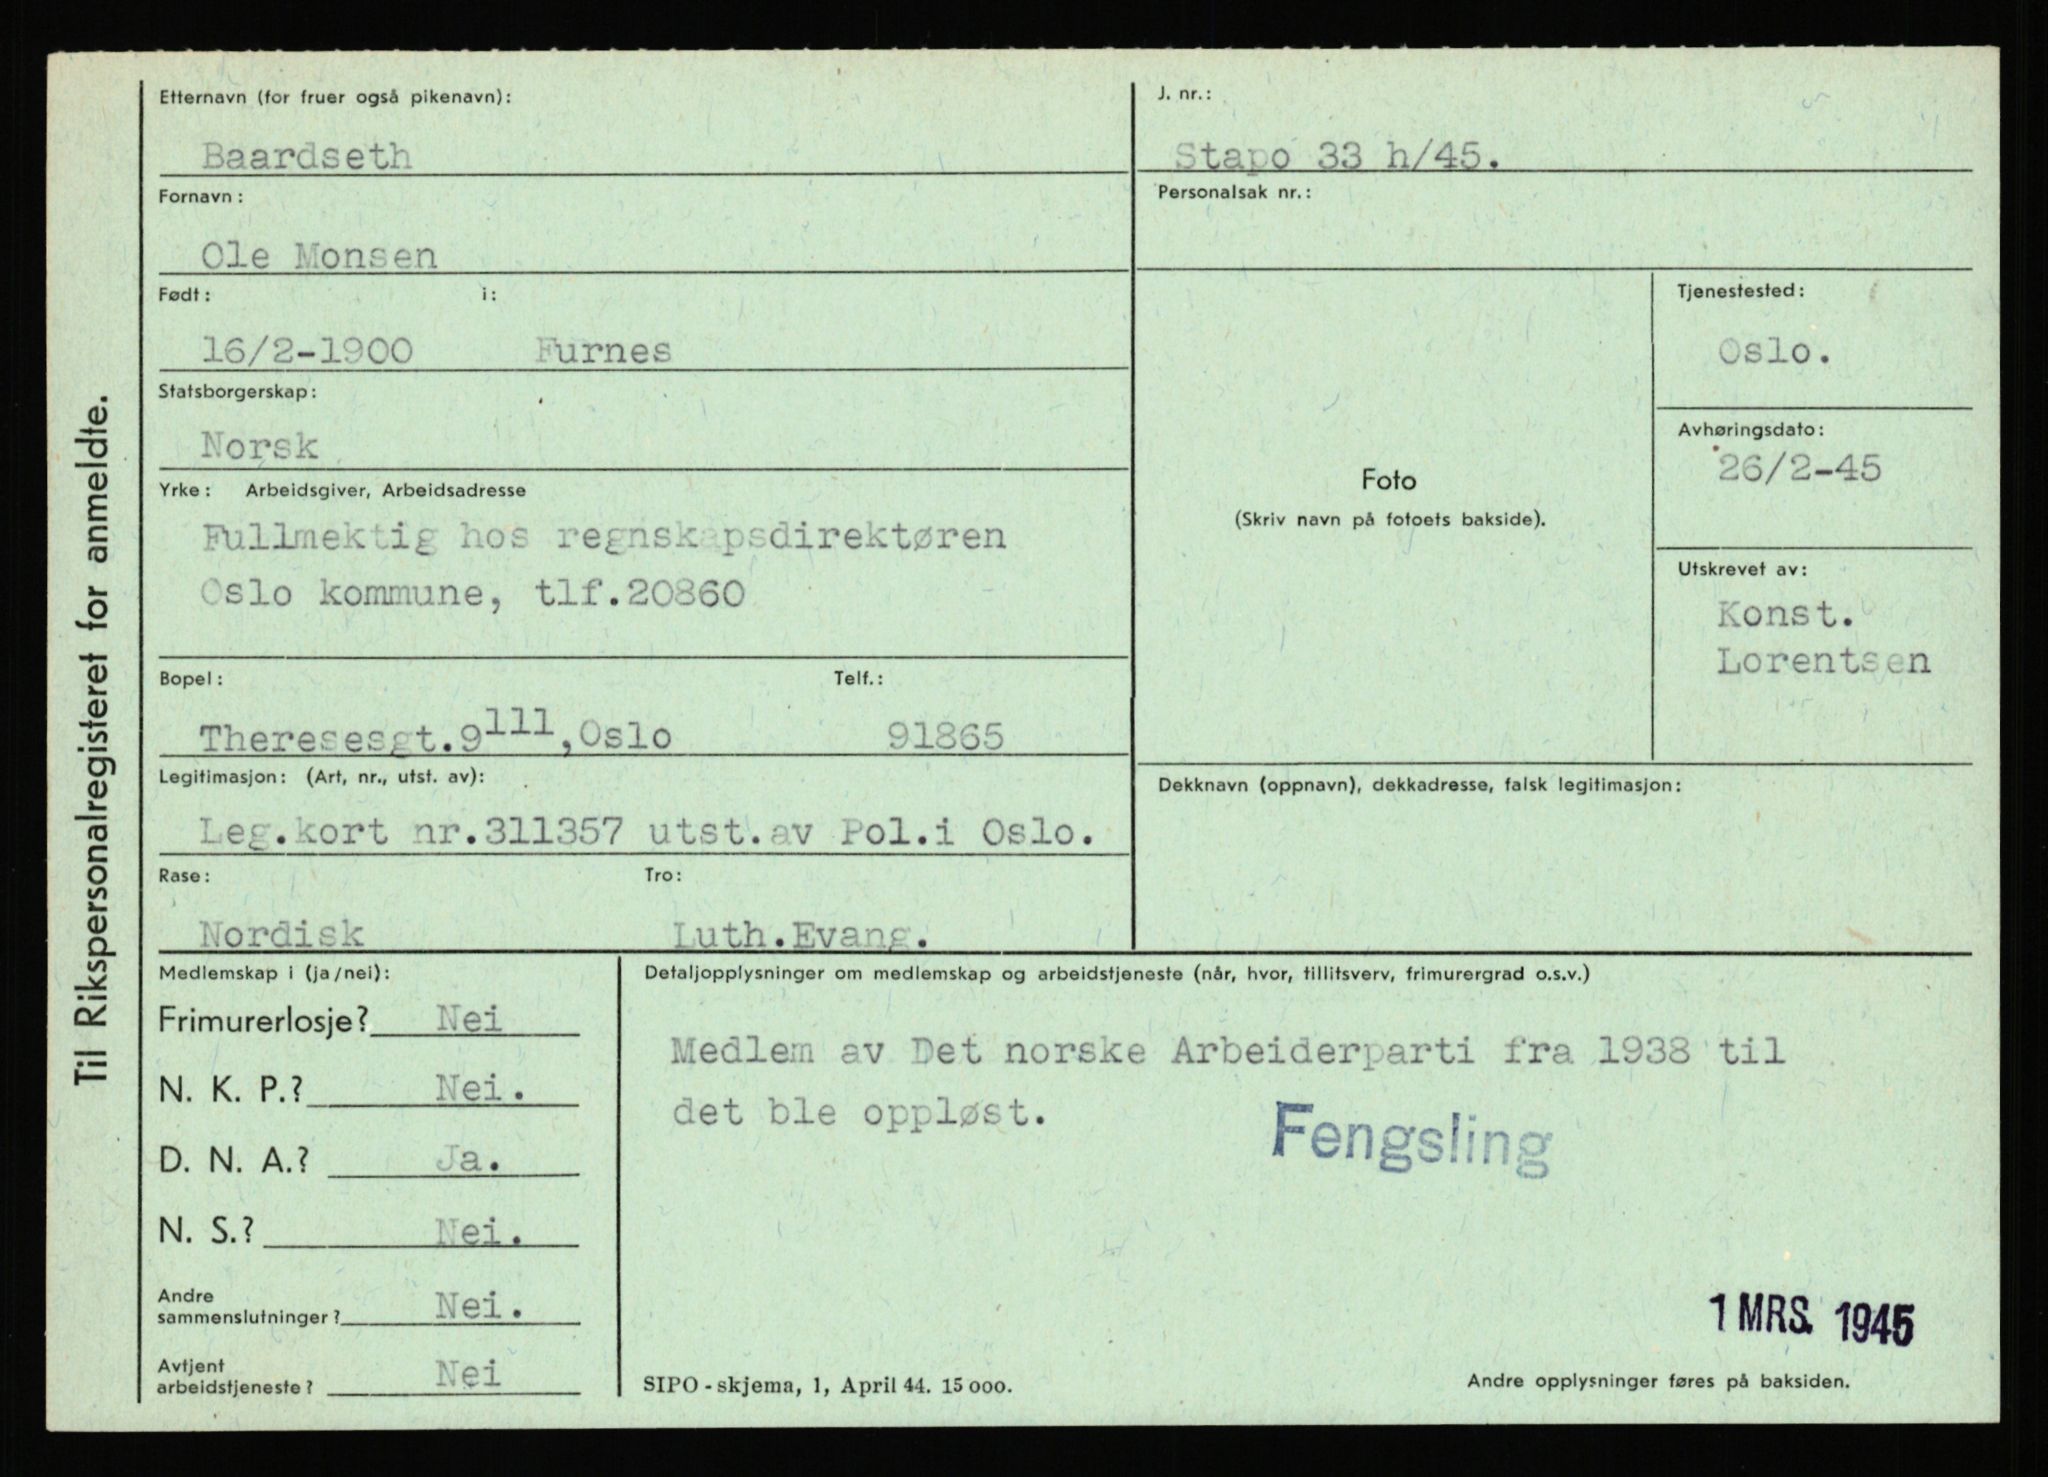 Til Rikspersonalregisteret for anmeldte.
Etternavn (for fruer også pikenavn):
Baardseth
Fornavn:
Ole Monsen
Født: i:
16/2-1900 Furnes
Statsborgerskap:
Norsk
Yrke: Arbeidsgiver, Arbeidsadresse
Fullmektig hos regnskapsdirektøren
Oslo kommune, tlf.20860
Bopel: Telf.:
Theresesgt.9111,Oslo 91865
Legitimasjon: (Art, nr., utst. av):
Leg.kort nr.311357 utst.av Pol.i Oslo.
Rase: Tro:
Nordisk Luth.Evang.
J. nr.:
Stapo 33 h/45.
Personalsak nr.:
Foto
(Skriv navn på fotoets bakside).
Tjenestested:
Oslo.
Avhøringsdato:
26/2-45
Utskrevet av:
Konst.
Lorentsen
Dekknavn (oppnavn), dekkadresse, falsk legitimasjon:
Medlemskap i (ja/nei):
Frimurerlosje? Nei
N. K. P.? Nei.
D. N. A.? Ja.
N. S.? Nei.
Andre
sammenslutninger? Nei.
Avtjent
arbeidstjeneste? Nei
Detaljopplysninger om medlemskap og arbeidstjeneste (når, hvor, tillitsverv, frimurergrad o.s.v.)
Medlem av Det norske Arbeiderparti fra 1938 til
det ble oppløst.
Fengsling
1 MRS. 1945
SIPO - skjema, 1, April 44. 15 000.
Andre opplysninger føres på baksiden.